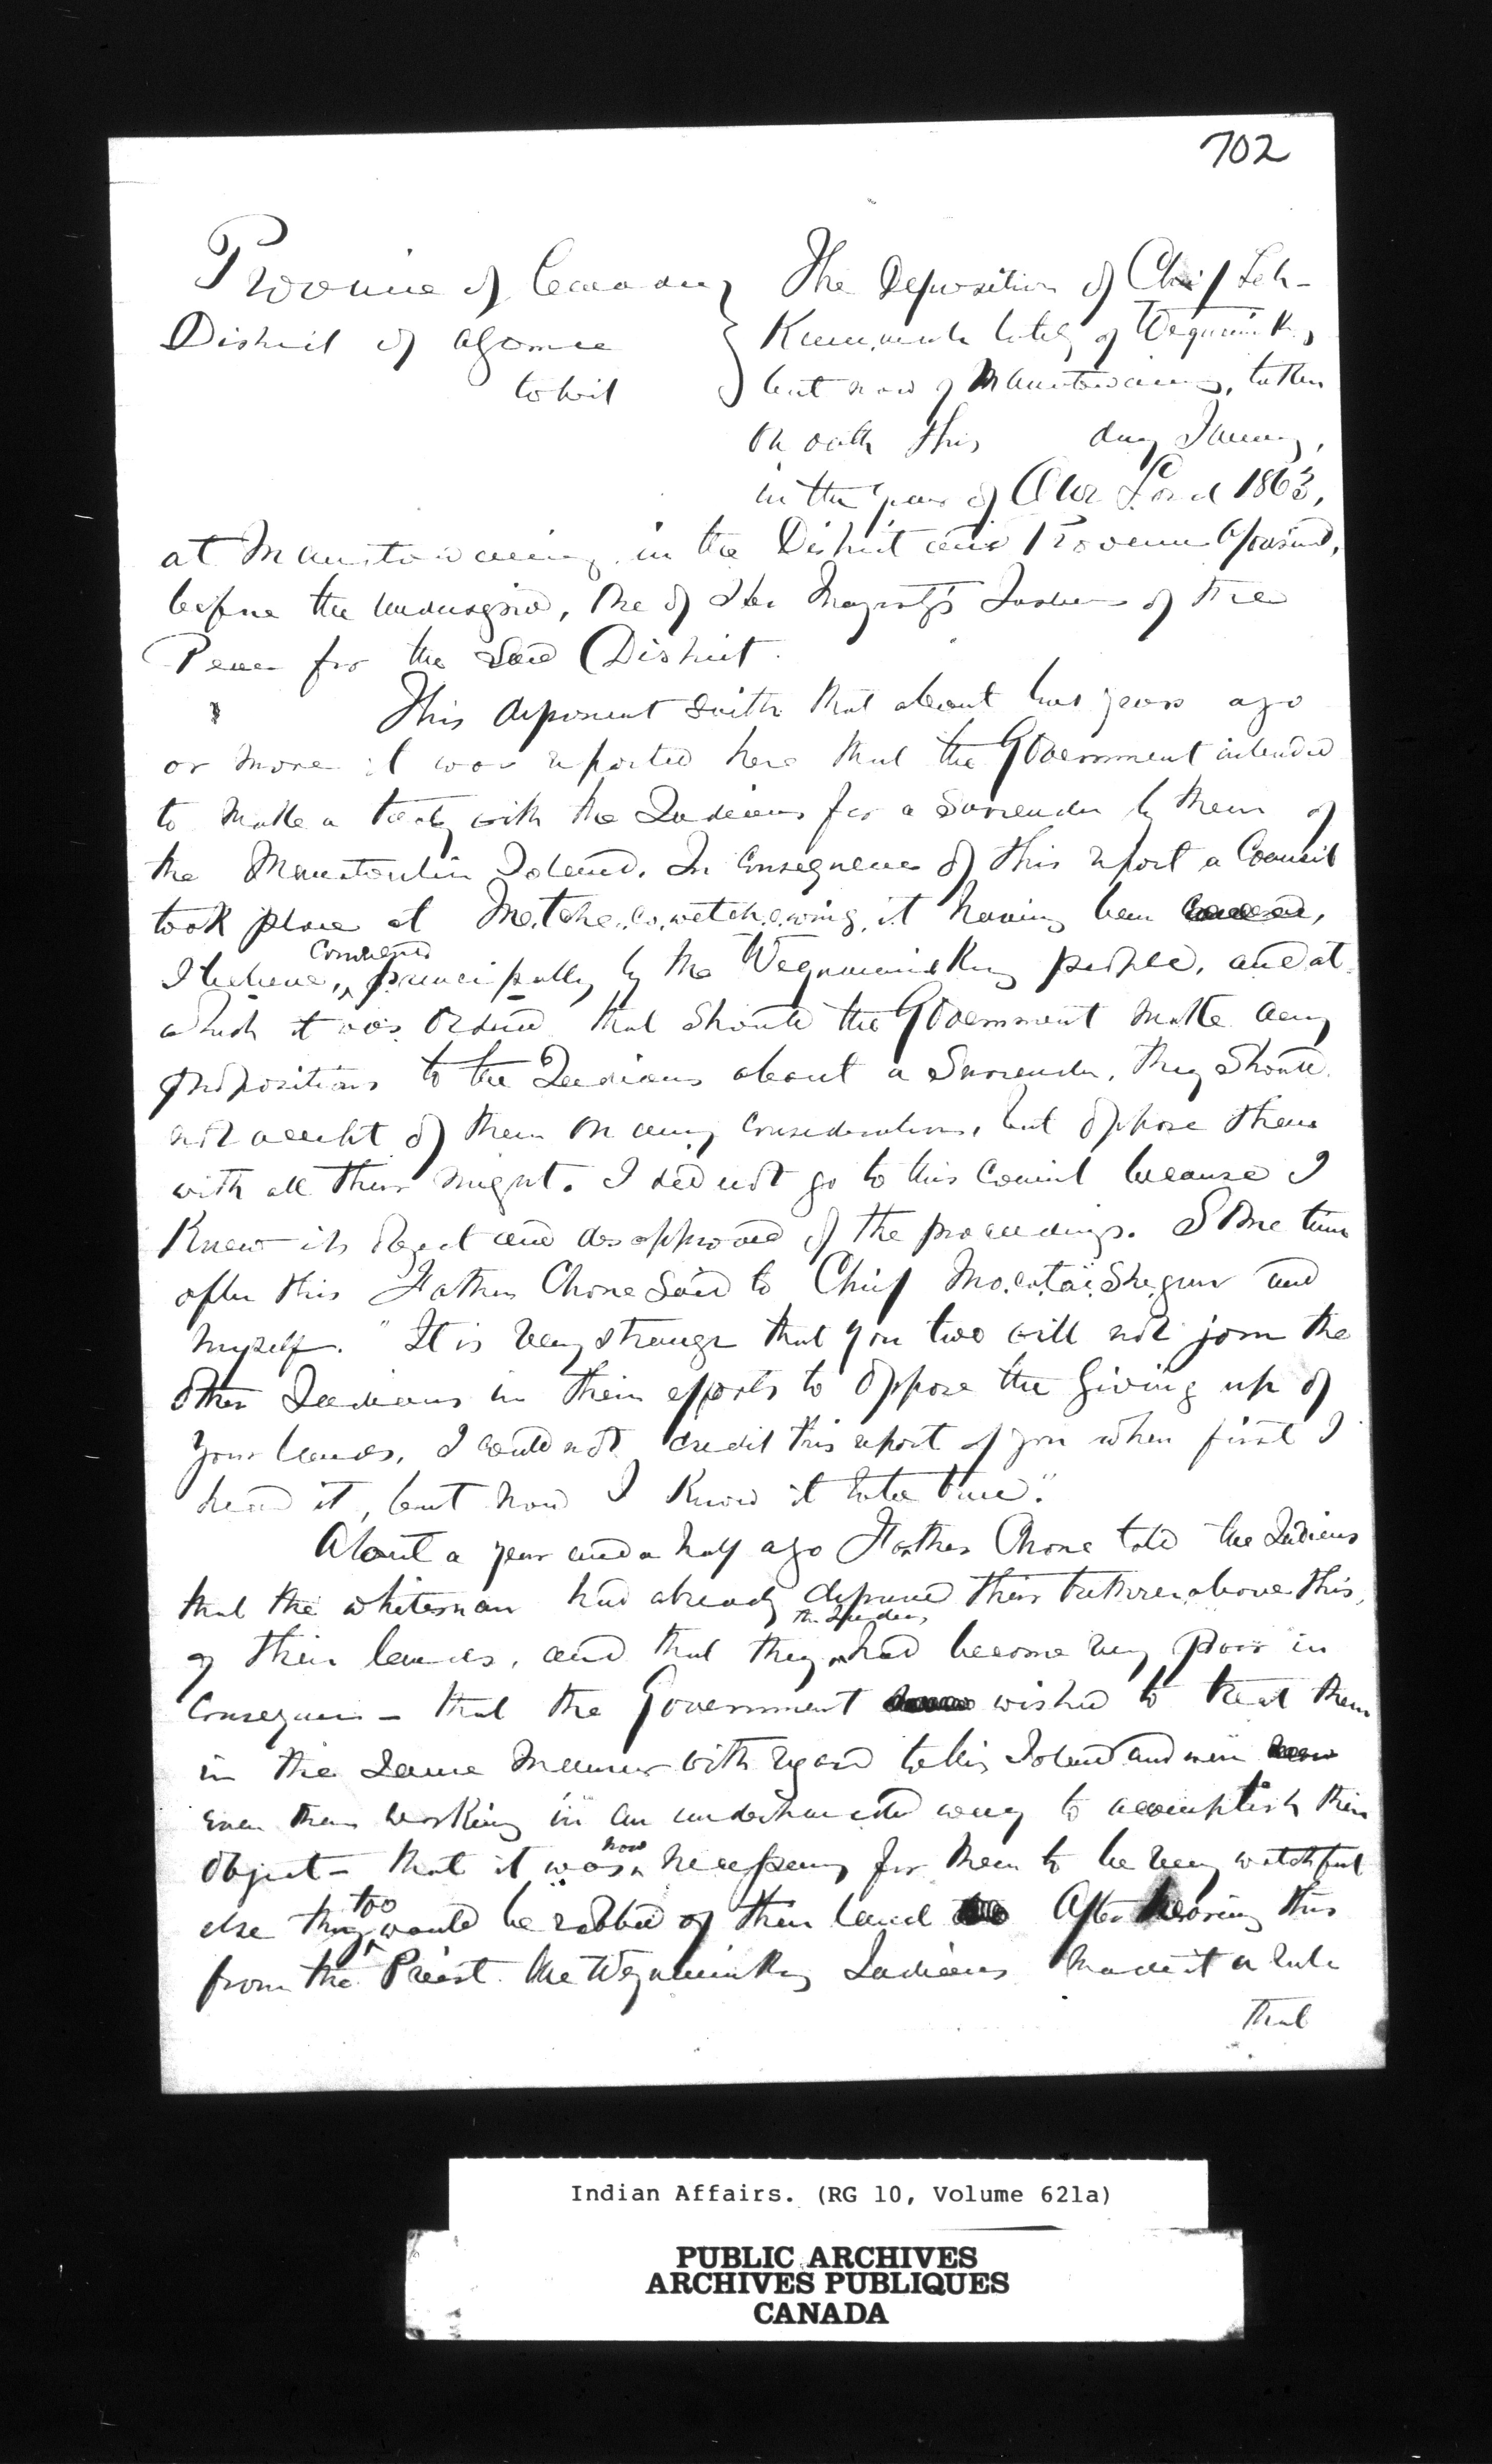 702
Province of Canada } The Deposition of Chief Teh-
District of Algoma Kummeh lately of Wequemiking
to wit but now of Manitowaning, taken
on oath this day January,
in the year of Our Lord 1863,
at Manitowaning in the District and Province aforesaid,
before the undersigned, One of Her Majesty's Justices of the
Peace for the said District.
This deponent saith that about two years ago
or more it was reported here that the Government intended
to make a treaty with the Indians for a surrender by them of
the Manitoulin Island. In consequence of this report a Council
took place at Me.tche.co.wetch.e.wing, it having been
I believe, convened principally by the Wequemiking people, and at
which it was ordered that should the Government make any
propositions to the Indians about a Surrender, they should
not accept of them on any consideration, but oppose them
with all their might. I did not go to this Council because I
knew its object and disapproved of the proceedings. Some time
after this Father Chone said to Chief Mo.co.tai.she.gun and
myself. "It is very strange that you two will not join the
other Indians in their efforts to oppose the giving up of
your lands, I could not credit this report of you when first I
heard it, but now I know it to be true."
About a year and a half ago Father Chone told the Indians
that the whiteman had already deprived their brethren above this,
of their lands, and that they the Indians had become very poor in
consequence – that the Government wished to treat them
in the same manner with regard to this Island and were
even then working in an underhanded way to accomplish their
object – that it was now necessary for them to be very watchful
else they too would be robbed of their land After hearing this
from the Priest the Wequemiking Indians made it a rule
that
Indian Affairs. (RG 10, Volume 621a)
PUBLIC ARCHIVES
ARCHIVES PUBLIQUES
CANADA